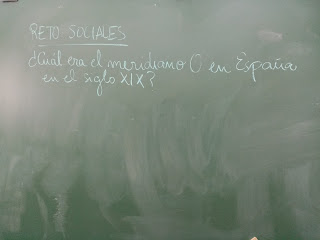 RETO SOCIALES
¿Cuál era el meridiano 0 en España
en el siglo XIX?